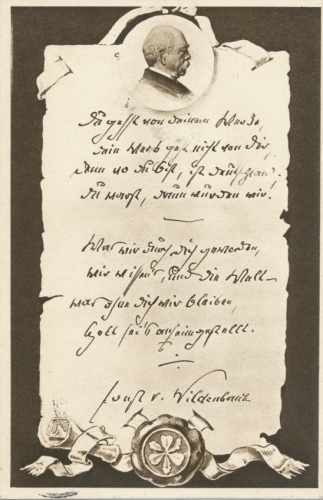 Du gehst von deinem Werke,
dein Werk geht nicht von dir,
denn wo du bist, ist Deutschland,
du warst, drum wurden wir.
Was wir durch dich geworden,
wir wissen's, und die Welt
was ohne dich wir bleiben,
Gott sei's anheimgestellt.
Ernst v. Wildenbruch